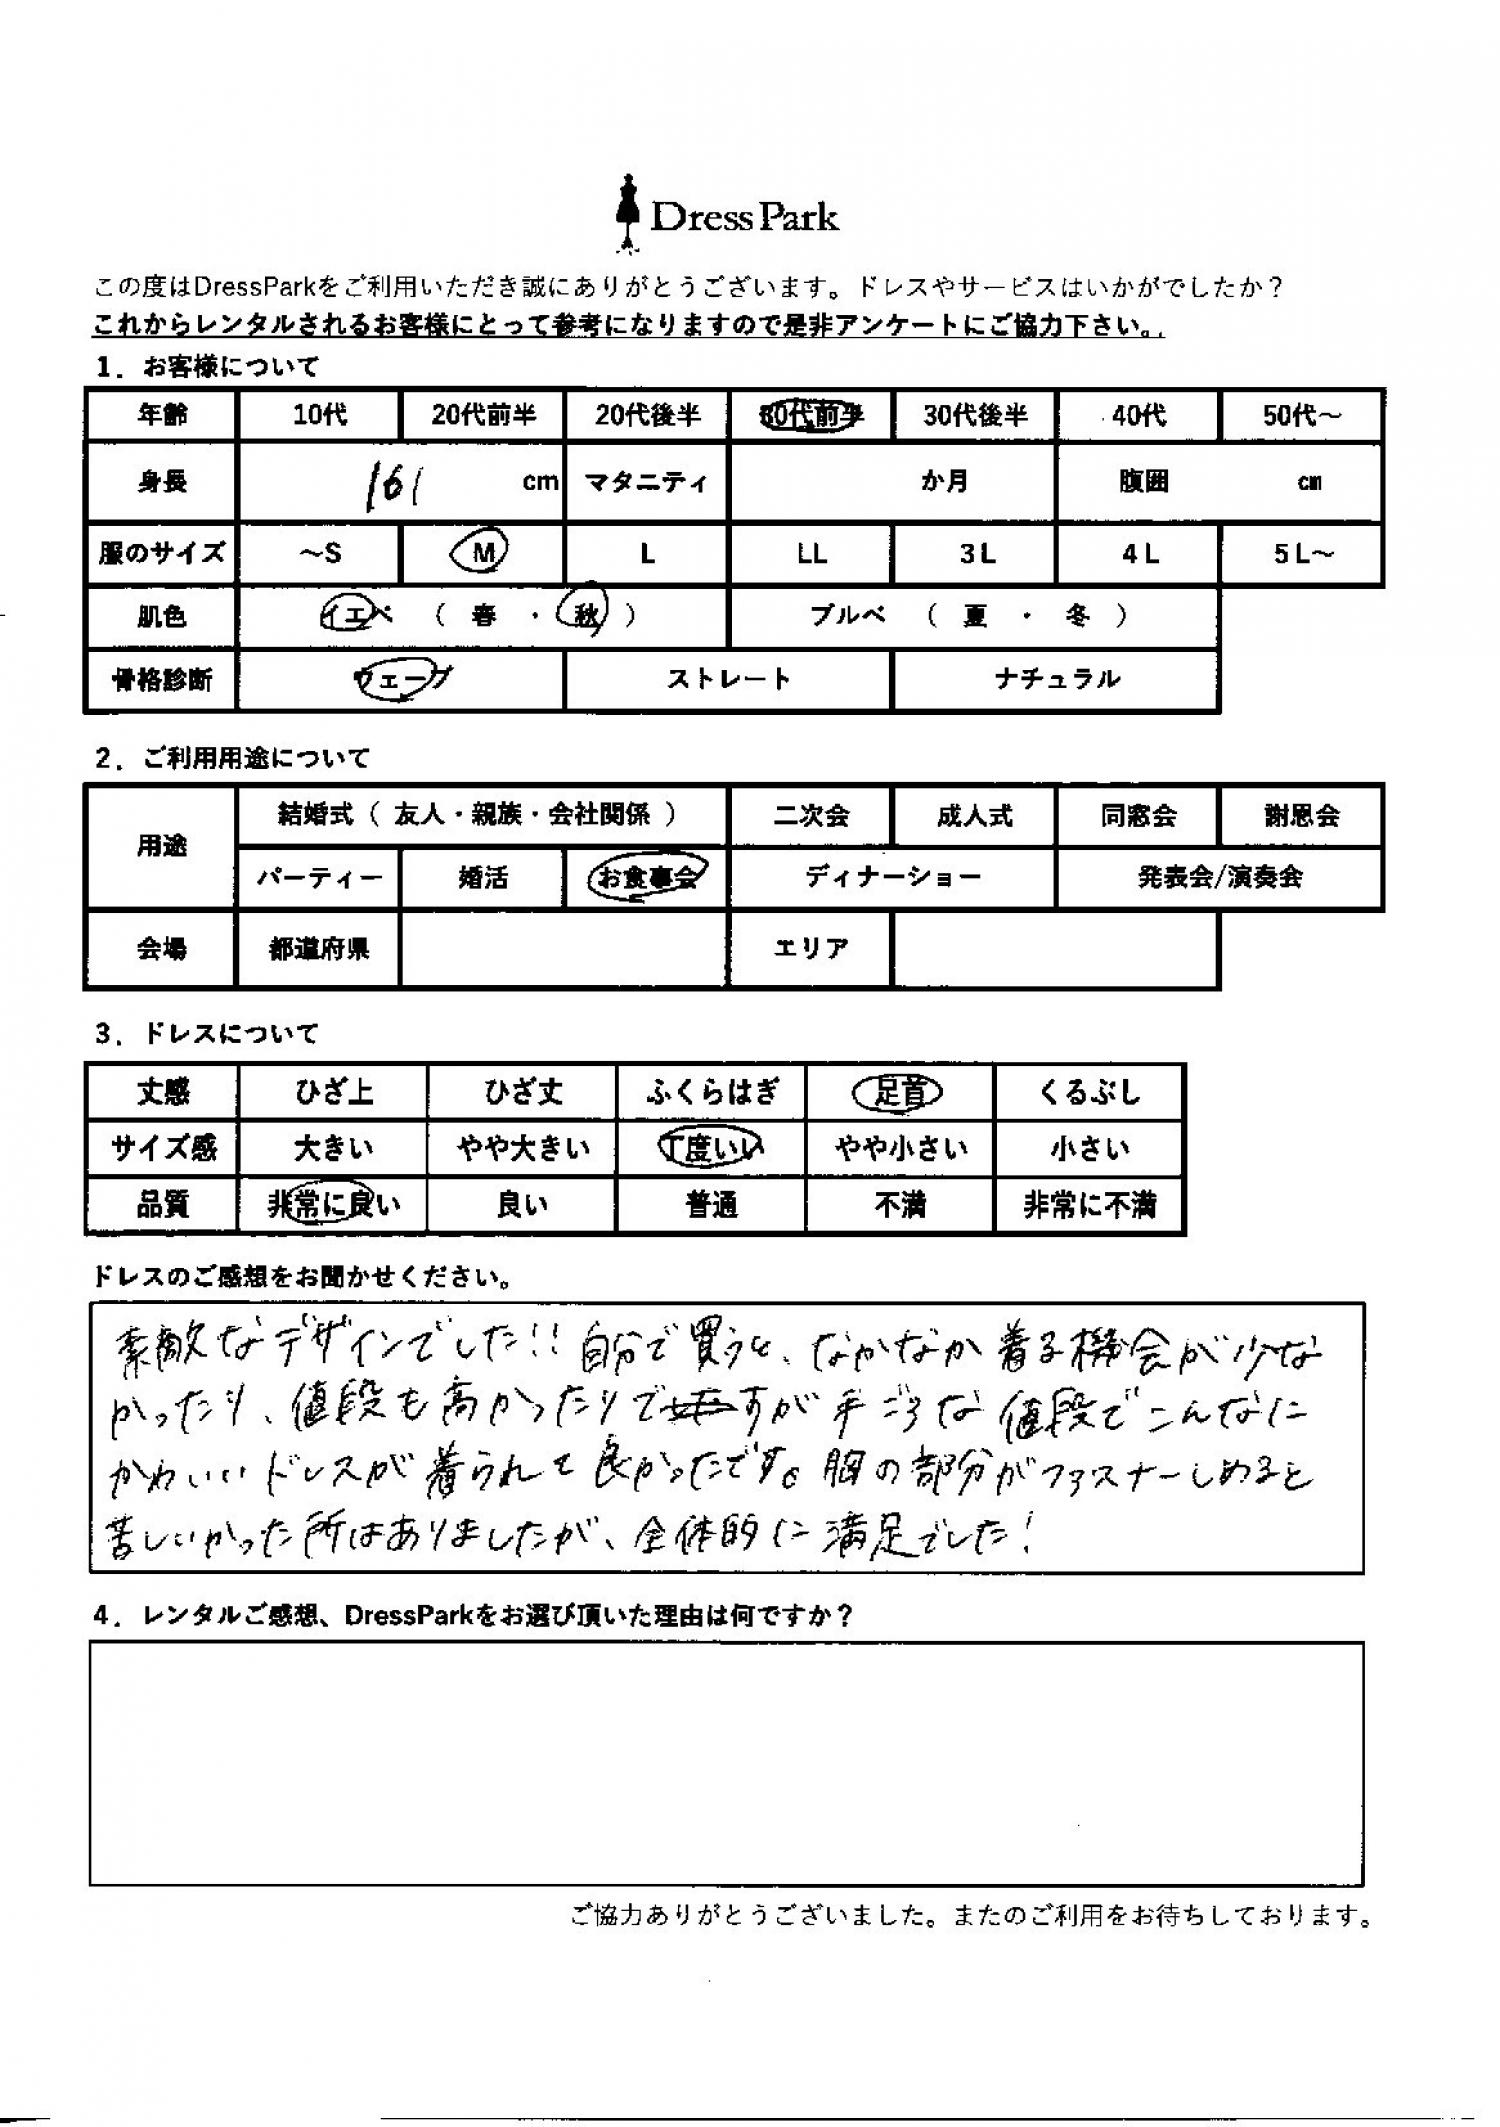 Dress Park
この度はDressParkをご利用いただき誠にありがとうございます。ドレスやサービスはいかがでしたか？
これからレンタルされるお客様にとって参考になりますので是非アンケートにご協力下さい。.
1．お客様について
年齢 10代 20代前半 20代後半 30代前半 30代後半 40代 50代～
身長 161 cm マタニティ か月 腹囲 cm
服のサイズ ～S M L LL 3L 4L 5L～
肌色 イエベ （ 春 ・ 秋 ） ブルベ （ 夏 ・ 冬 ）
骨格診断 ウェーブ ストレート ナチュラル
2．ご利用用途について
用途 結婚式（ 友人・親族・会社関係 ） 二次会 成人式 同窓会 謝恩会
パーティー 婚活 お食事会 ディナーショー 発表会/演奏会
会場 都道府県 エリア
3．ドレスについて
丈感 ひざ上 ひざ丈 ふくらはぎ 足首 くるぶし
サイズ感 大きい やや大きい 丁度いい やや小さい 小さい
品質 非常に良い 良い 普通 不満 非常に不満
ドレスのご感想をお聞かせください。
素敵なデザインでした!! 自分で買うと、なかなか着る機会が少な
かったり、値段も高かったりですが手ごろな値段でこんなに
かわいいドレスが着られて良かったです。胸の部分がファスナーしめると
苦しいかった所はありましたが、全体的に満足でした!
4．レンタルご感想、DressParkをお選び頂いた理由は何ですか？
ご協力ありがとうございました。またのご利用をお待ちしております。